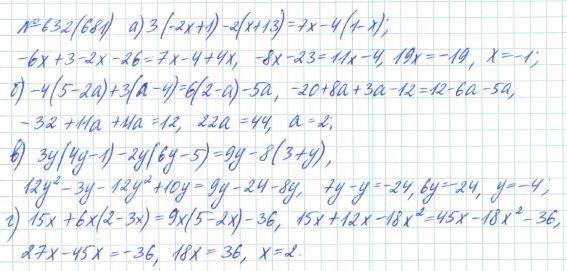 №632(681) а) 3(-2x+1)-2(x+13)=7x-4(1-x);
-6x+3-2x-26=7x-4+4x, -8x-23=11x-4, 19x=-19, x=-1;
б) -4(5-2a)+3(a-4)=6(2-a)-5a, -20+8a+3a-12=12-6a-5a,
-32+11a+11a=12, 22a=44, a=2;
в) 3y(4y-1)-2y(6y-5)=9y-8(3+y),
12y²-3y-12y²+10y=9y-24-8y, 7y-y=-24, 6y=-24, y=-4;
г) 15x+6x(2-3x)=9x(5-2x)-36, 15x+12x-18x²=45x-18x²-36,
27x-45x=-36, 18x=36, x=2.